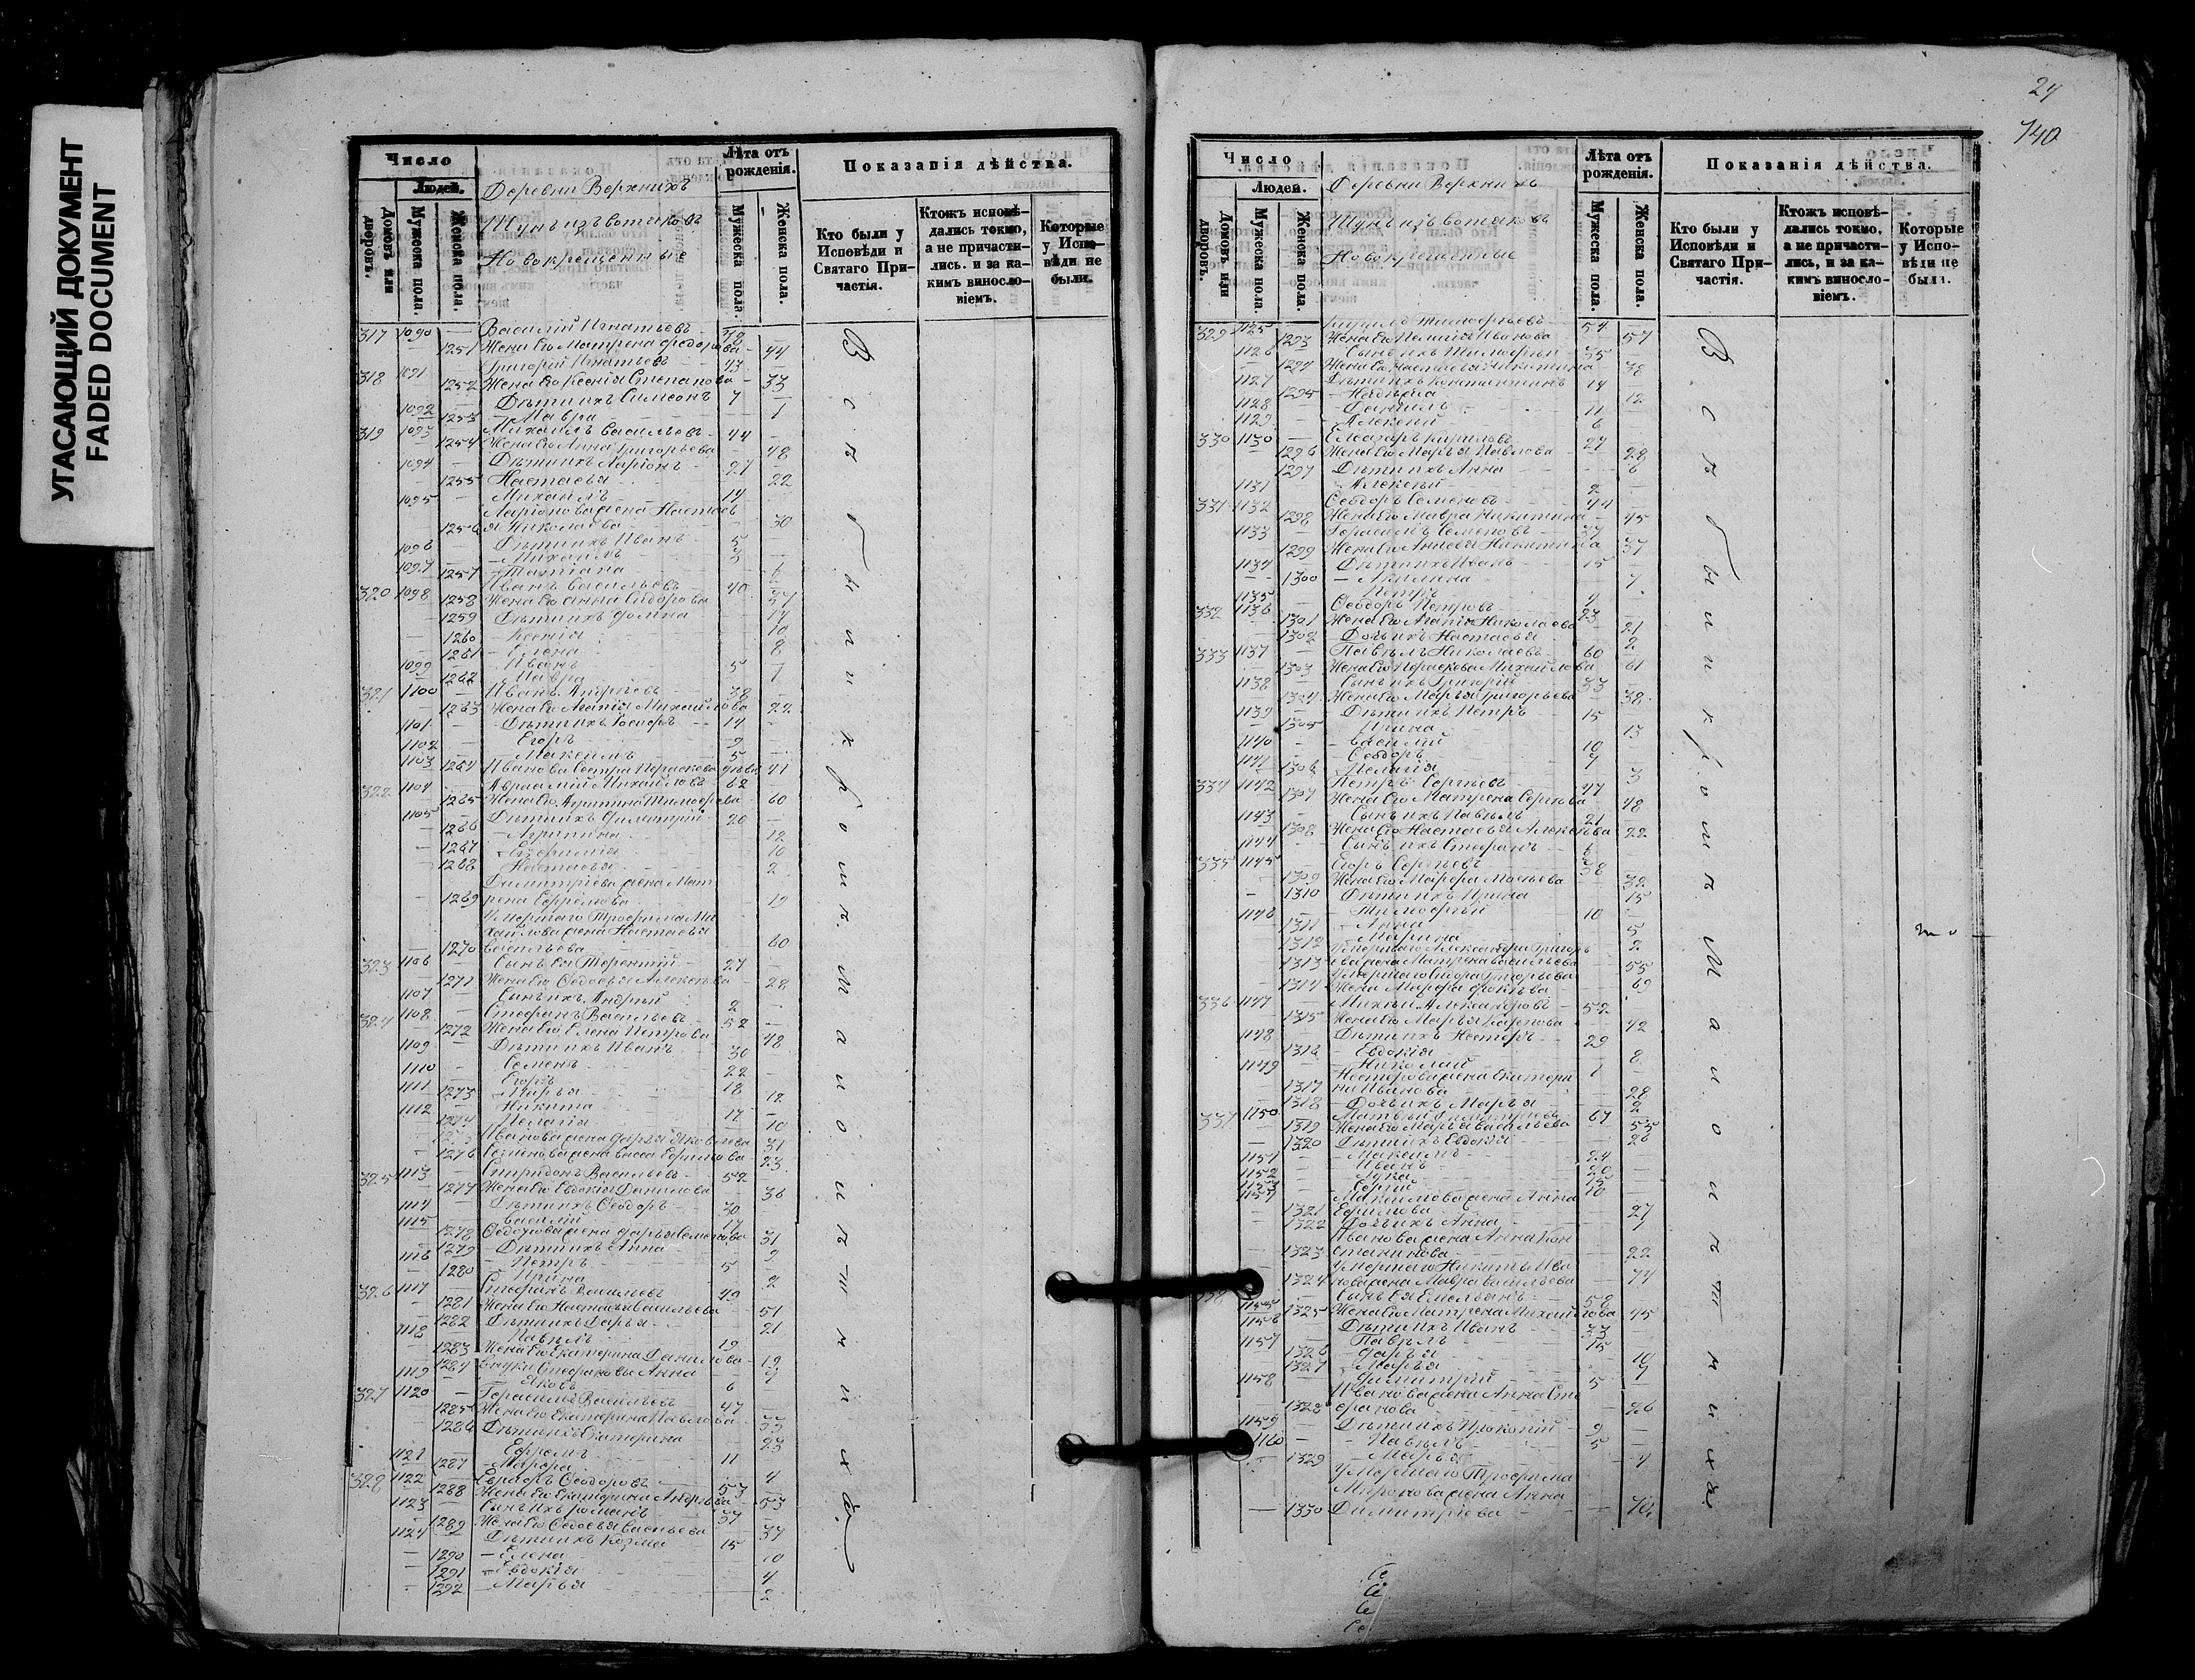 УГАСАЮЩИЙ ДОКУМЕНТ
FADED DOCUMENT
Число
Людей.
Домовъ или дворовъ.
Мужеска пола.
Женска пола.
Деревни Верхнихъ
изъ вотяковъ
Новокрещенные
Лѣта отъ рожденія.
Мужеска пола.
Женска пола.
Показанія дѣйства.
Кто были у Исповѣди и Святаго Причастія.
Ктожъ исповѣдались токмо, а не причастились. и за какимъ винословіемъ.
Которые у Исповѣди не были.
317 1090 — Василій Игнатьевъ 48
1251 Жена его Матрена Федорова 44
318 1091 Григорій Игнатьевъ 43
1252 Жена его Ксенія Степанова 33
1092 Дѣти ихъ Симеонъ 7
1253 — Мавра 1
319 1093 Михаилъ Васильевъ 44
1254 Жена его Анна Григорьева 48
1094 Дѣти ихъ Ларіонъ 27
1255 Настасья 22
1095 Михаилъ 14
Ларіонова жена Настась
1256 я Николаева 30
1096 Дѣти ихъ Иванъ 5
1097 — Михаилъ 3
1257 — Татіана 6
320 1098 Иванъ Васильевъ 40
1258 Жена его Анна Сидорова 37
1259 Дѣти ихъ Фомина 17
1260 — Ксенія 10
1261 — Елена 8
1099 — Иванъ 5
1262 — Мавра 1
321 1100 Иванъ Андреевъ 38
1263 Жена его Агапія Михайлова 22
1101 Дѣти ихъ 14
1102 Егоръ 9
1103 Максимъ 5
1264 Иванова сестра Параскева дѣвка 41
322 1104 Авраамій Михайловъ 62
1265 Жена его Агрипина Тимофеева 60
1105 Дѣти ихъ Димитрій 20
1266 — Агрипина 12
1267 — Евфимія 10
1268 Настасья 2
Димитріева жена Мат
1269 рена Ефремова 19
Умершаго Трофима Ми
хайлова жена Настасья
1270 Васильева 60
323 1106 Сынъ ея Терентій 27
1271 Жена его Ѳедосья Алексѣева 28
1107 Сынъ ихъ Андрей 2
324 1108 Стефанъ Васильевъ 52
1272 Жена его Елена Петрова 48
1109 Дѣти ихъ Иванъ 30
1110 Семенъ 22
1111 Егоръ 18
1273 — Марья 12
1112 Никита 17
1274 — Пелагія 10
1275 Иванова жена Дарья Яковлева 31
1276 Семенова жена Васса Ефимова 23
325 1113 Спиридонъ Васильевъ 52
1277 Жена его Евдокія Данилова 36
1114 Дѣти ихъ Ѳеодоръ 30
1115 Василій 17
1278 Ѳеодорова жена Дарья Семенова 31
1279 — Дѣти ихъ Анна 9
1116 — Петръ 5
1280 — Ирина 2
326 1117 Стефанъ Васильевъ 49
1281 Жена его Настасья Васильева 51
1282 Дѣти ихъ Дарья 21
1118 Павелъ 19
1283 Жена его Екатерина Данилова 19
1284 Внуки Стефановы Анна 9
1119 — Яковъ 6
327 1120 Герасимъ Васильевъ 47
1285 Жена его Екатерина Павлова
1286 Дѣти ихъ Екатерина 23
1121 Ефремъ 11
1287 — Марфа 4
328 1122 Ѳеодоровъ 53
1288 Жена его Екатерина Андреева 53
1123 Сынъ ихъ Романъ 37
1289 Жена его Ѳедосья Васильева 37
1124 Дѣти ихъ Козма 15
1290 — Елена 10
1291 — Евдокія 4
1292 — Марья 2
24
740
Число
Людей.
Домовъ или дворовъ.
Мужеска пола.
Женска пола.
Деревни Верхнихъ
изъ вотяковъ
Новокрещенные
Лѣта отъ рожденія.
Мужеска пола.
Женска пола.
Показанія дѣйства.
Кто были у Исповѣди и Святаго Причастія.
Ктожъ исповѣдались токмо, а не причастились, и за какимъ винословіемъ.
Которые у Исповѣди не были.
329 1125 Тимофеевъ 54
1293 Жена его Пелагія Иванова 57
1126 Сынъ ихъ Тимофей 35
1294 Жена его Настасья Никитина 38
1127 Дѣти ихъ Константинъ 14
1295 — Надежда 12
1128 — Даніилъ 11
1129 — Алексій 6
330 1130 Елеазаръ Кириловъ 27
1296 Жена его Марья Павлова 28
1297 Дѣти ихъ Анна 6
1131 — Алексѣй 2
331 1132 Ѳеодоръ Семеновъ 44
1298 Жена его Мавра Никитина 45
1133 Герасимъ Семеновъ 37
1299 Жена его Анисья Никитина 37
1134 Дѣти ихъ Иванъ 15
1300 — Акилина 7
1135 Петръ 4
332 1136 Ѳеодоръ Петровъ 23
1301 Жена его Агапія Николаева 21
1302 — Дочь ихъ Настасья 2
333 1137 — Павелъ Николаевъ 60
1303 Жена его Параскева Михайлова 61
1138 Сынъ ихъ Григорій 33
1304 Жена его Марья Григорьева 38
1139 — Дѣти ихъ Петръ 15
1305 Ирина 13
1140 — Василій 10
1141 — Ѳеодоръ 7
1306 — Пелагія 3
334 1142 Петръ Сергѣевъ 47
1307 Жена его Матрена Сергѣева 48
1143 — Сынъ ихъ Павелъ 21
1308 Жена его Настасья Алексѣева 22
1144 — Сынъ ихъ Стефанъ 6
335 1145 Егоръ Сергѣевъ 38
1309 Жена его Марфа 32
1310 Дѣти ихъ Ирина 15
1146 — Тимофей 10
1311 — Анна 5
1312 — Марина 2
Умершаго Александра Григорь
1313 ева жена Матрена Васильева 55
Умершаго Сидора Григорьева
1314 Жена Марфа 69
336 1147 Михей Александровъ 52
1315 Жена его Марья Карпова 42
1148 — Дѣти ихъ Несторъ 29
1316 — Евдокія 8
1149 — Николай 1
Несторова жена Екатери
1317 на Иванова 28
1318 — Дочь ихъ Марья 2
337 1150 Матвей Димитріевъ 67
1319 Жена его Марья Васильева 55
1320 — Дѣти ихъ Евдокія 26
1151 — Максимъ 24
1152 — Иванъ 20
1153 — Лука 15
1154 — Сергій 10
Максимова жена Анна
1321 Ефимова 27
1322 Дочь ихъ Анна 1
Иванова жена Анна Кон
1323 стантинова 22
Умершаго Никиты Ива
1324 нова жена Мавра Васильева 74
338 1155 Сынъ ея Емельянъ 58
1325 Жена его Матрена Михайлова 45
1156 Дѣти ихъ Иванъ 23
1157 — Павелъ 15
1326 — Дарья 10
1327 — Марья 7
1158 Димитрій 5
Иванова жена Анна Сте
1328 фанова 26
1159 — Дѣти ихъ Прокопій 9
1160 — Павелъ 5
1329 — Марья 4
Умершаго Трофима
Миронова жена Анна
1330 Димитріева
Се
Се
Се
Се